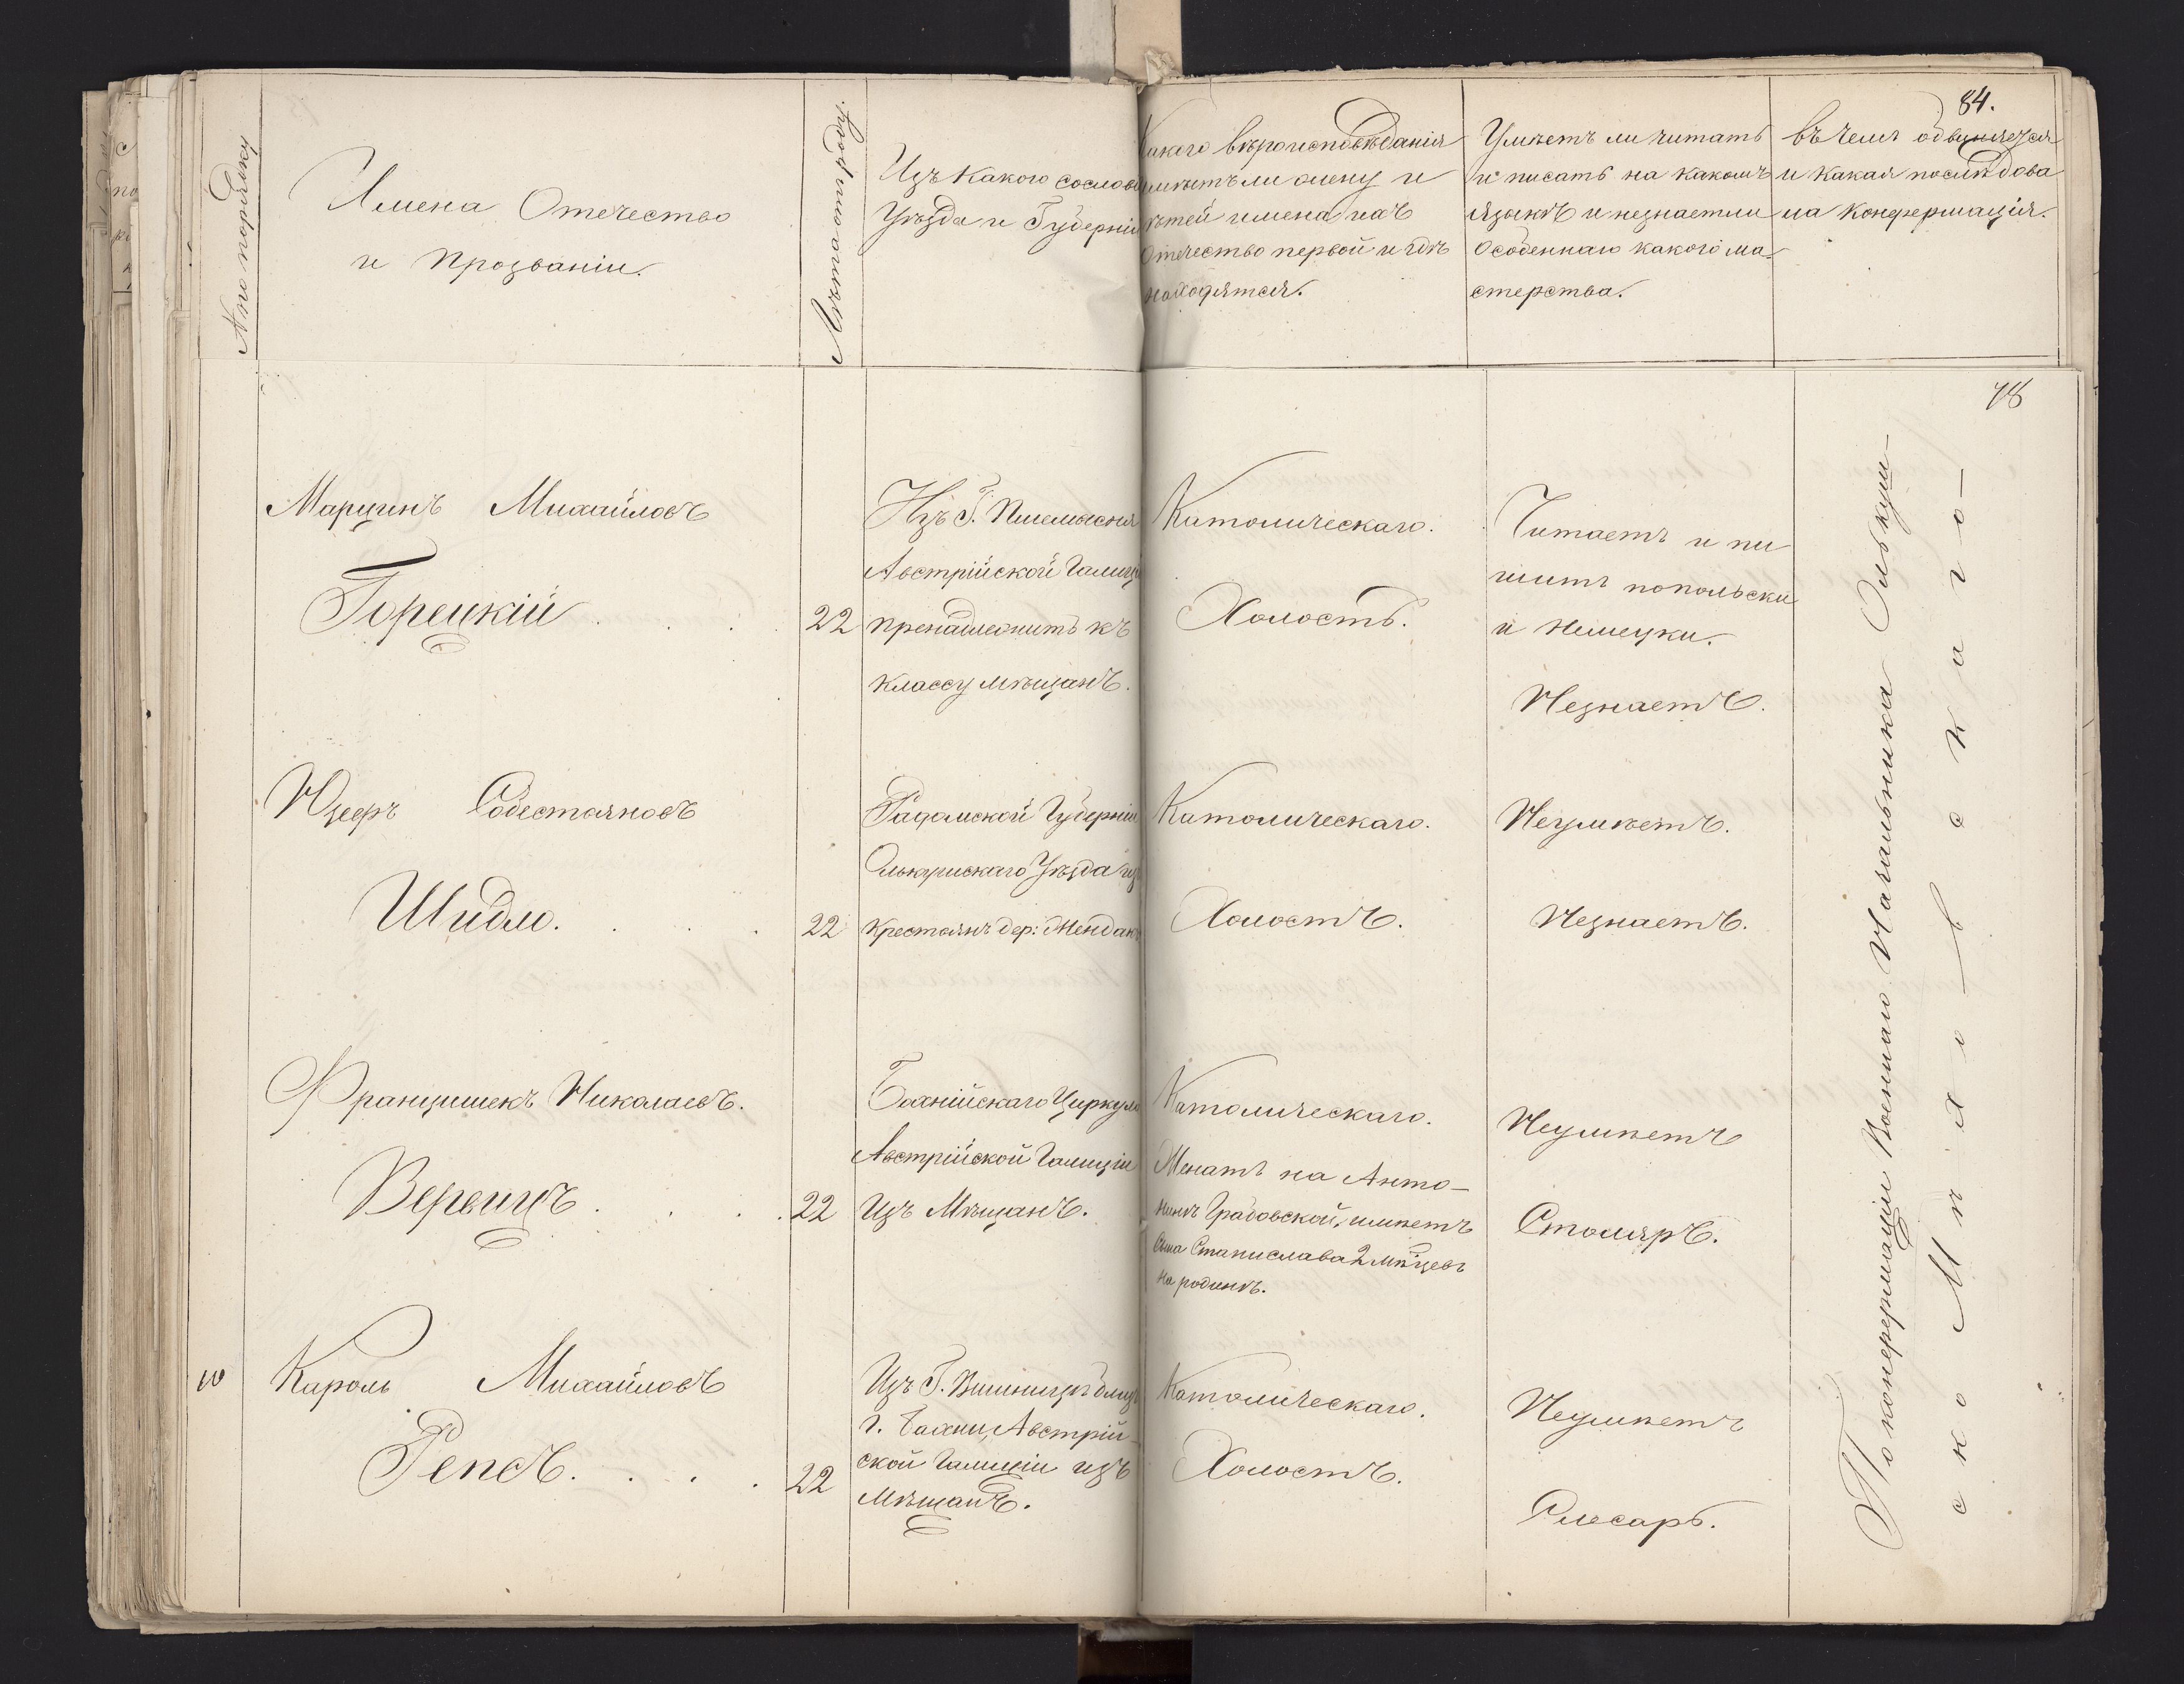 84.
№ по порядку
Имена Отечество
и Прозваніи.
Лѣта отъ роду.
Изъ какого сослов
Уѣзда и Губерніи
Какого вѣроисповѣданія
имѣетъ ли жену и
дѣтей имена ихъ
Отечество первой и гдѣ
находятся.
Умѣетъ ли читать
и писать на какомъ
языкѣ и незнаетли
особеннаго какого ма-
стерства.
въ чемъ обвиняется
и какая послѣдова
ла Конфермація.
78
Марцинъ Михайловъ
Горецкій
22
Изъ Г. Пшемысля
Австрійской Галиці
пренадлежитъ къ
классу мѣщанъ.
Католическаго.
Холостъ.
Читаетъ и пи
шитъ попольски
и Немецки.
Незнаетъ.
Юзефъ Собестьяновъ
Шидло.
22
Радомской Губерніи
Олькушскаго Уѣзда из
Крестьянъ дер:
Католическаго.
Холостъ.
Неумѣетъ.
Незнаетъ.
Францишекъ Николаевъ.
Верьицъ
22
Бохнійскаго Циркула
Австрійской Галиціи
Изъ Мѣщанъ.
Католическаго.
Женатъ на Анто-
нинѣ Градовской, имѣетъ
сына Станислава 2 мѣцевъ
на родинѣ.
Неумѣетъ
Столяръ.
10
Кароль Михайловъ
Репсъ.
22
Изъ Г. Вишницъ близ
г. Бохни, Австрій-
ской Галиціи изъ
Мѣщанъ.
Католическаго.
Холостъ.
Неумѣетъ
Слесарь.
По конфермаціи Военнаго Начальника Олькуш-
ско Мѣховскаго-